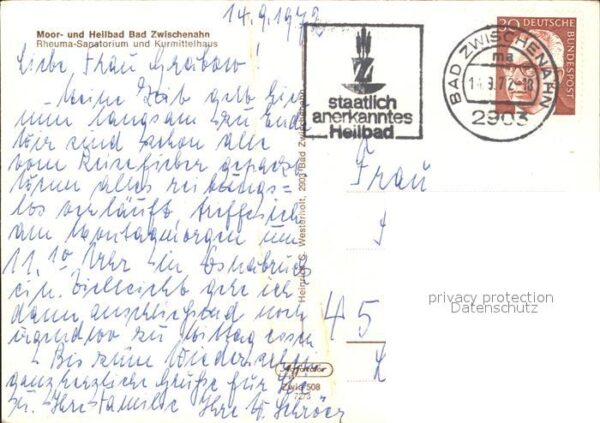 14.9.1972
Moor- und Heilbad Bad Zwischenahn
Rheuma-Sanatorium und Kurmittelhaus
Liebe Frau Grabow!
Meine Zeit geht hier
nun langsam zu Ende
Wir sind schon alle
vom Reisefieber gepackt
wenn alles reibungs=
los verläuft treffe ich
am Montagmorgen um
11.10 Uhr in Osnabrück
ein. Vielleicht gehe ich
dann anschließend noch
irgendwo zu Mittag essen
Bis zum Wiedersehen
ganz herzliche Grüße für Sie
u. Ihre Familie Ihre
Heinrich C. Westerholt, 2903 Bad Zwischenahn
Z
staatlich
anerkanntes
Heilbad
BAD ZWISCHENAHN
ma
14.9.72-18
2903
30 DEUTSCHE
BUNDESPOST
Frau
45
privacy protection
Datenschutz
508
72/3